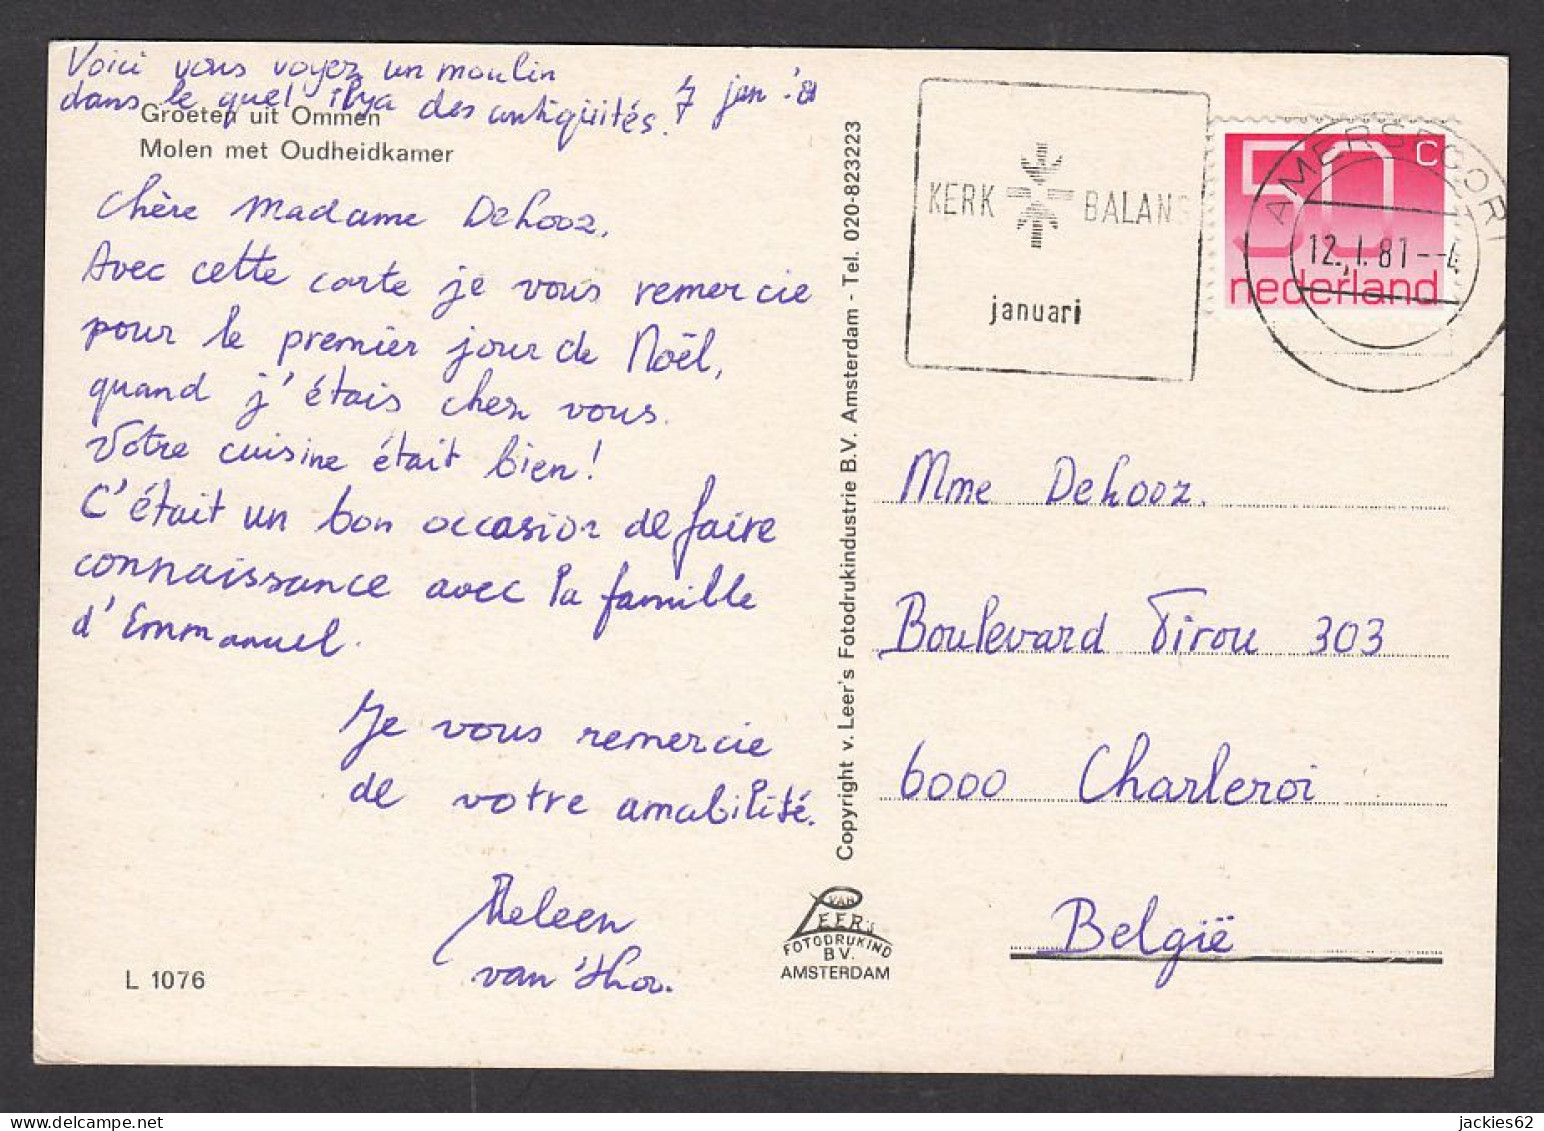 Voici vous voyez un moulin
dans le quel il ya des antiqüités.
7 jan '81
Groeten uit Ommen
Molen met Oudheidkamer
Chère Madame Dehooz,
Avec cette carte je vous remercie
pour le premier jour de Noël,
quand j'étais chez vous.
Votre cuisine était bien!
C'était un bon occasion de faire
connaissance avec la famille
d'Emmanuel.
Je vous remercie
de votre amabilité.
Heleen
van 't
L 1076
Copyright v. Leer's Fotodrukindustrie B.V. Amsterdam - Tel. 020-823223
VAN
LEER's
FOTODRUKIND
B.V.
AMSTERDAM
KERK BALANS
januari
AMERSFOORT
12. I. 81 --
50 c
nederland
Mme Dehooz.
Boulevard Tirou 303
6000 Charleroi
België
jackies62